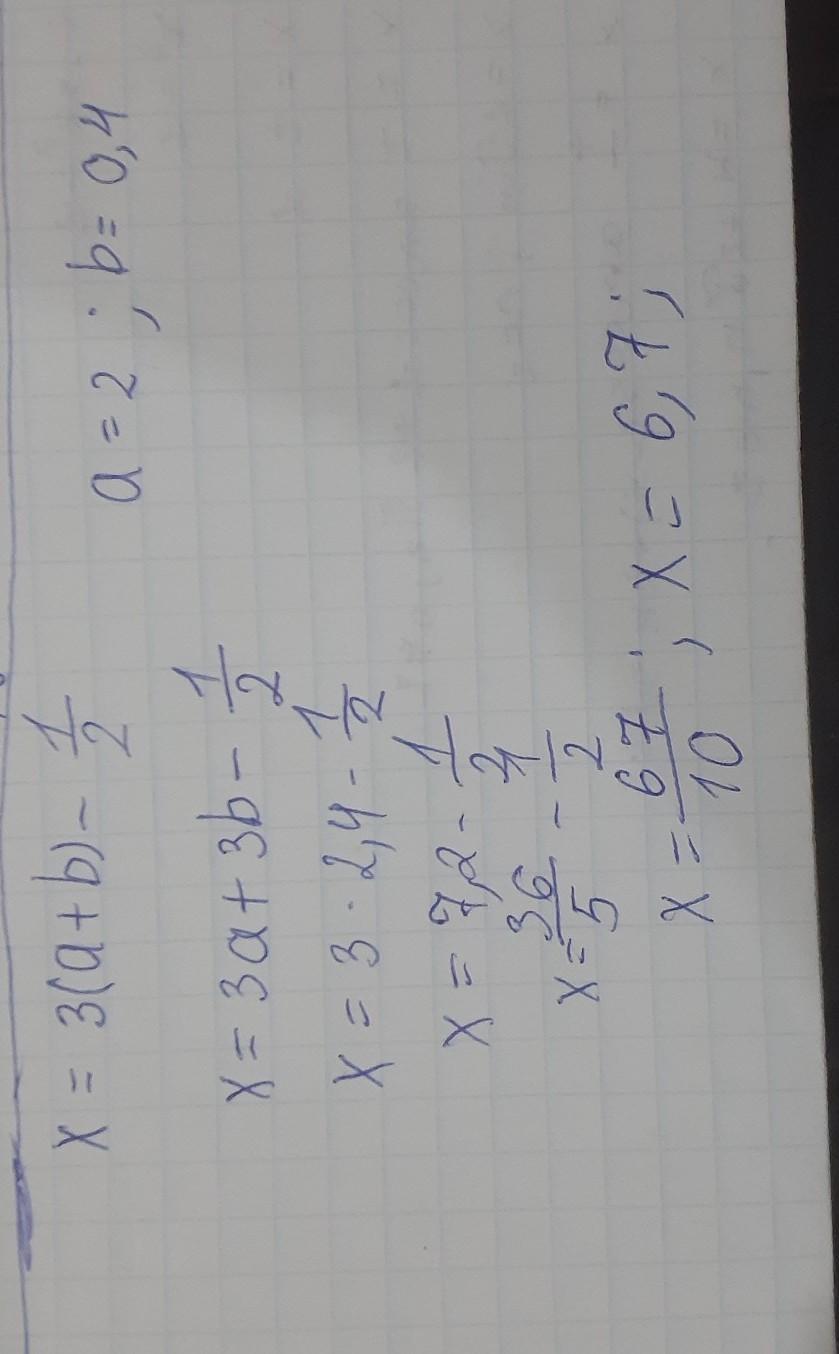 x = 3(a+b) - 1/2 a = 2 ; b = 0,4
x = 3a + 3b - 1/2
x = 3 · 2,4 - 1/2
x = 7,2 - 1/2
x = 36/5 - 1/2
x = 67/10 ; x = 6,7 ;